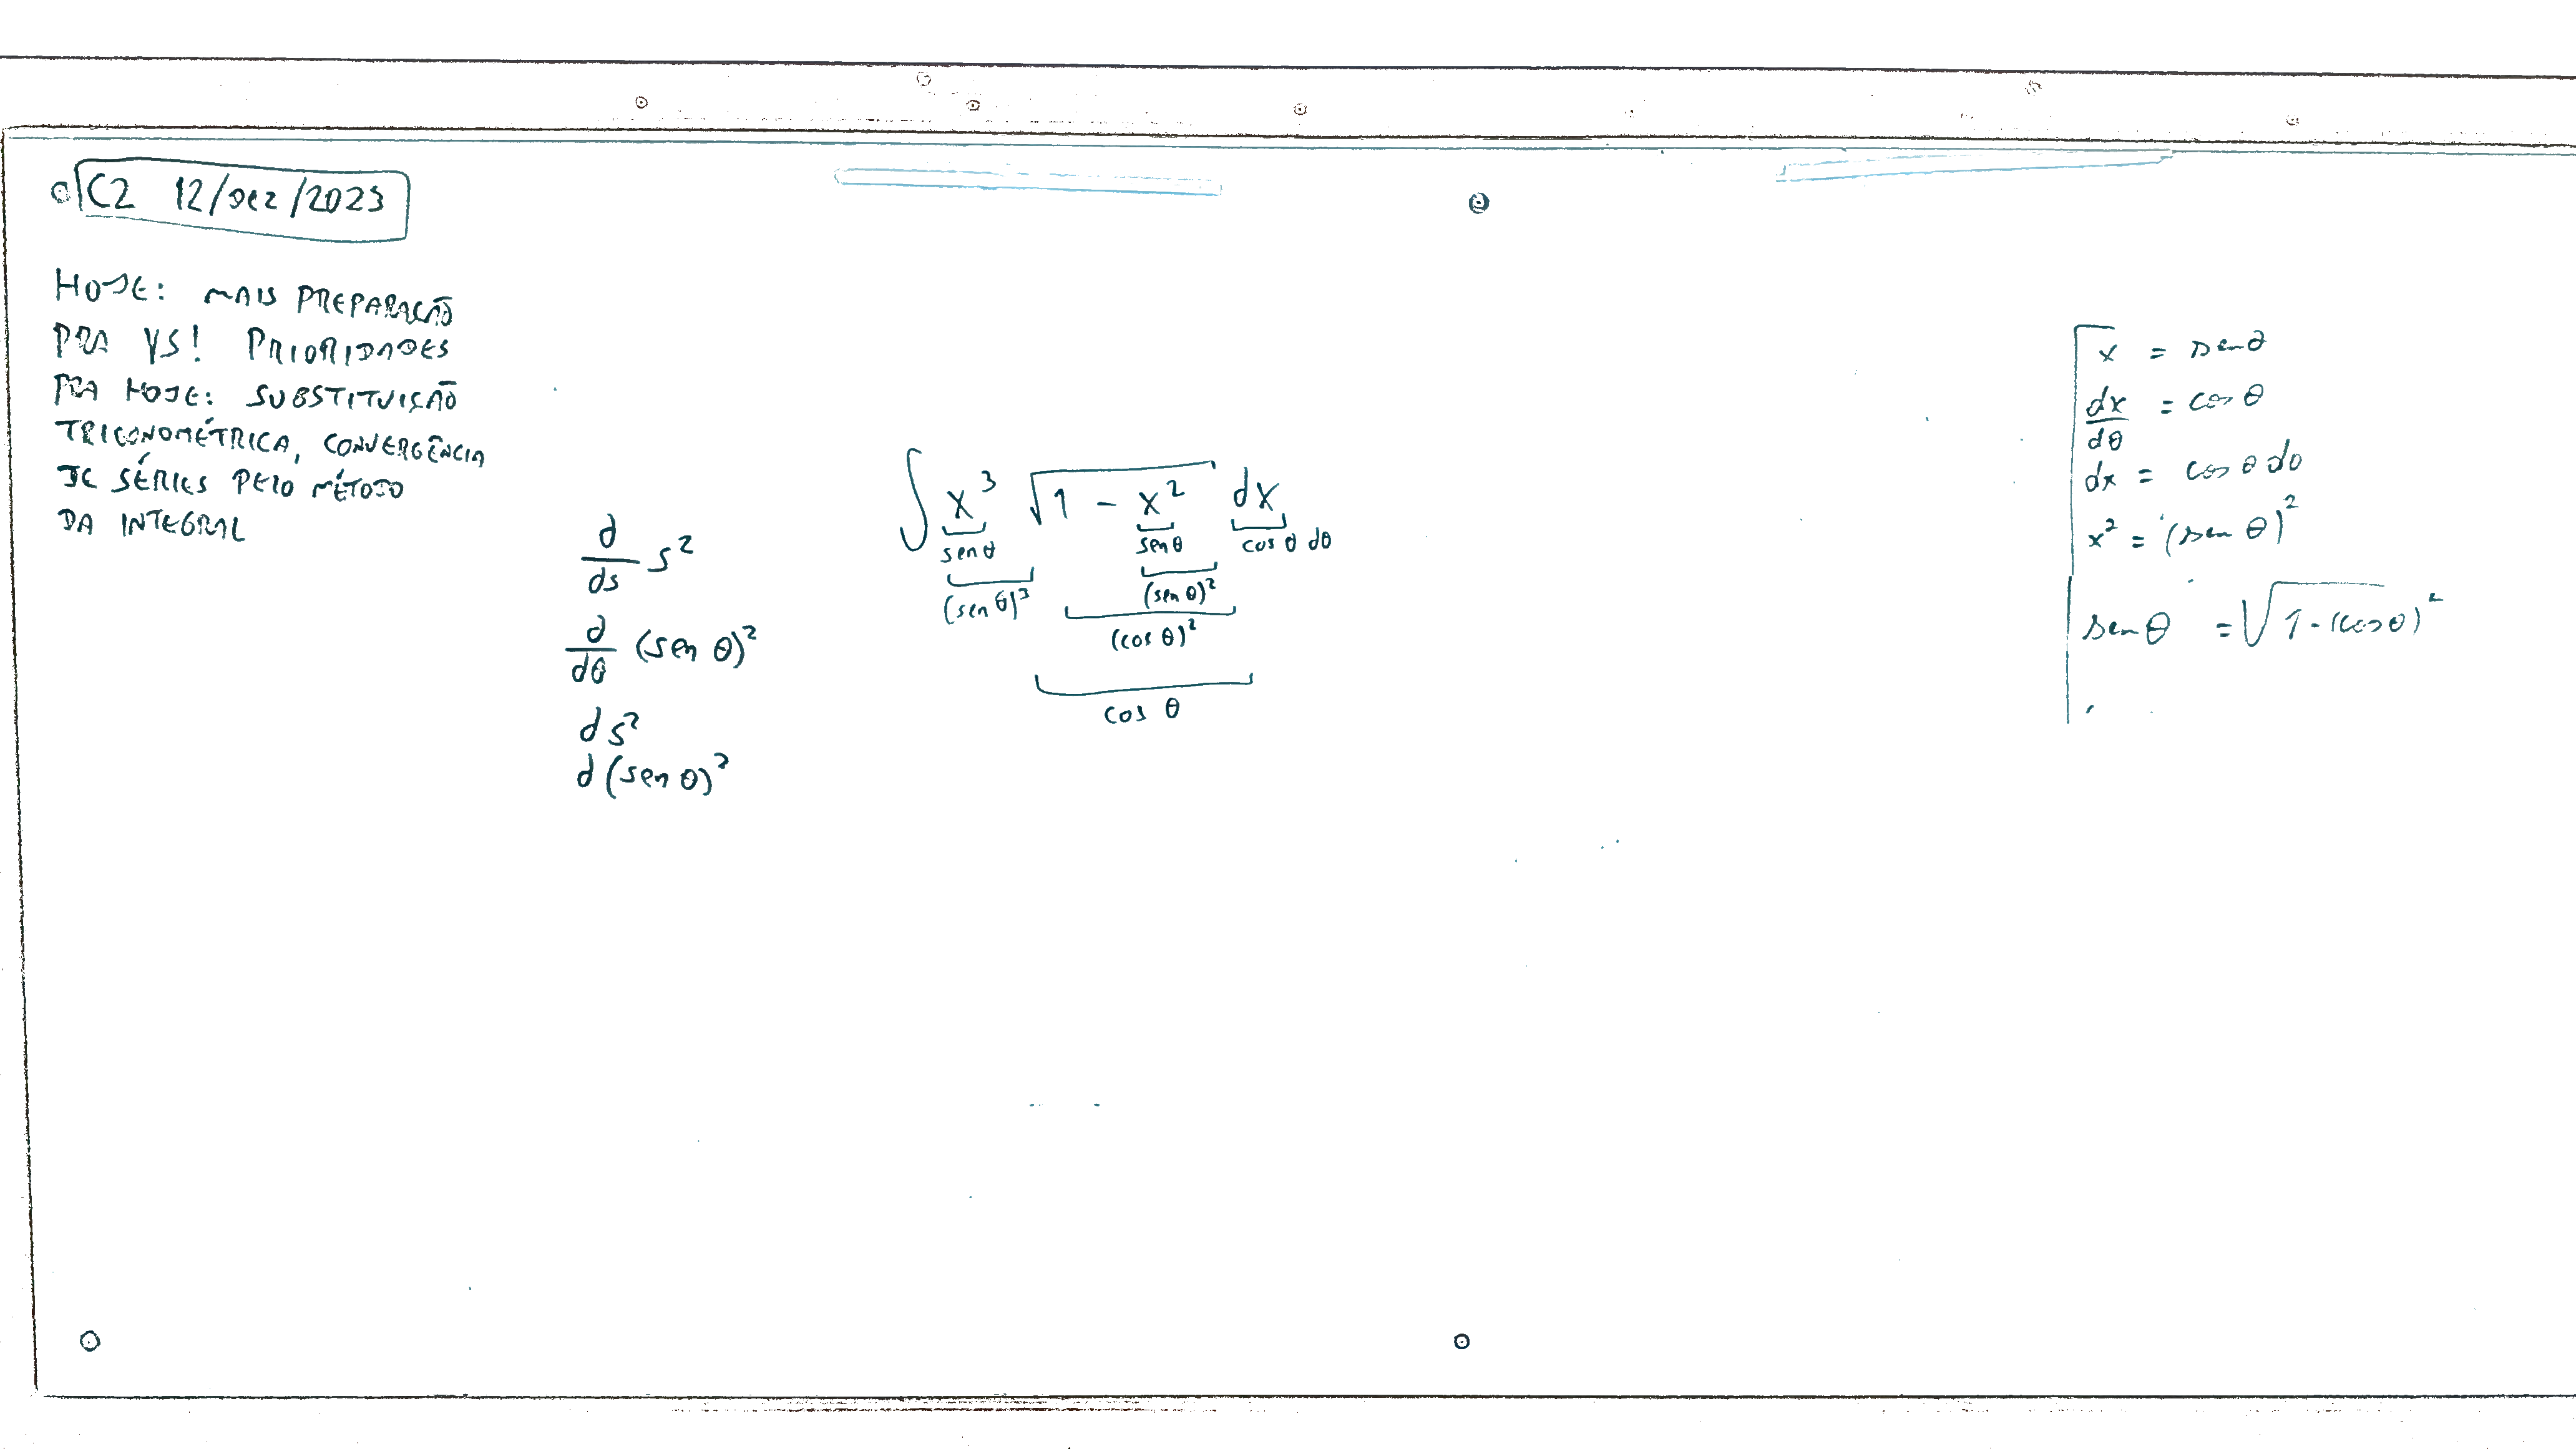 C2 12/DEZ/2023
HOJE: MAIS PREPARAÇÃO
PRA VS! PRIORIDADES
PRA HOJE: SUBSTITUIÇÃO
TRIGONOMÉTRICA, CONVERGÊNCIA
DE SÉRIES PELO MÉTODO
DA INTEGRAL
d/ds s²
d/dθ (sen θ)²
d s²
d (sen θ)²
∫ x³ √(1 - x²) dx
sen θ sen θ cos θ dθ
(sen θ)³ (sen θ)²
(cos θ)²
cos θ
x = sen θ
dx/dθ = cos θ
dx = cos θ dθ
x² = (sen θ)²
sen θ = √(1 - (cos θ)²)